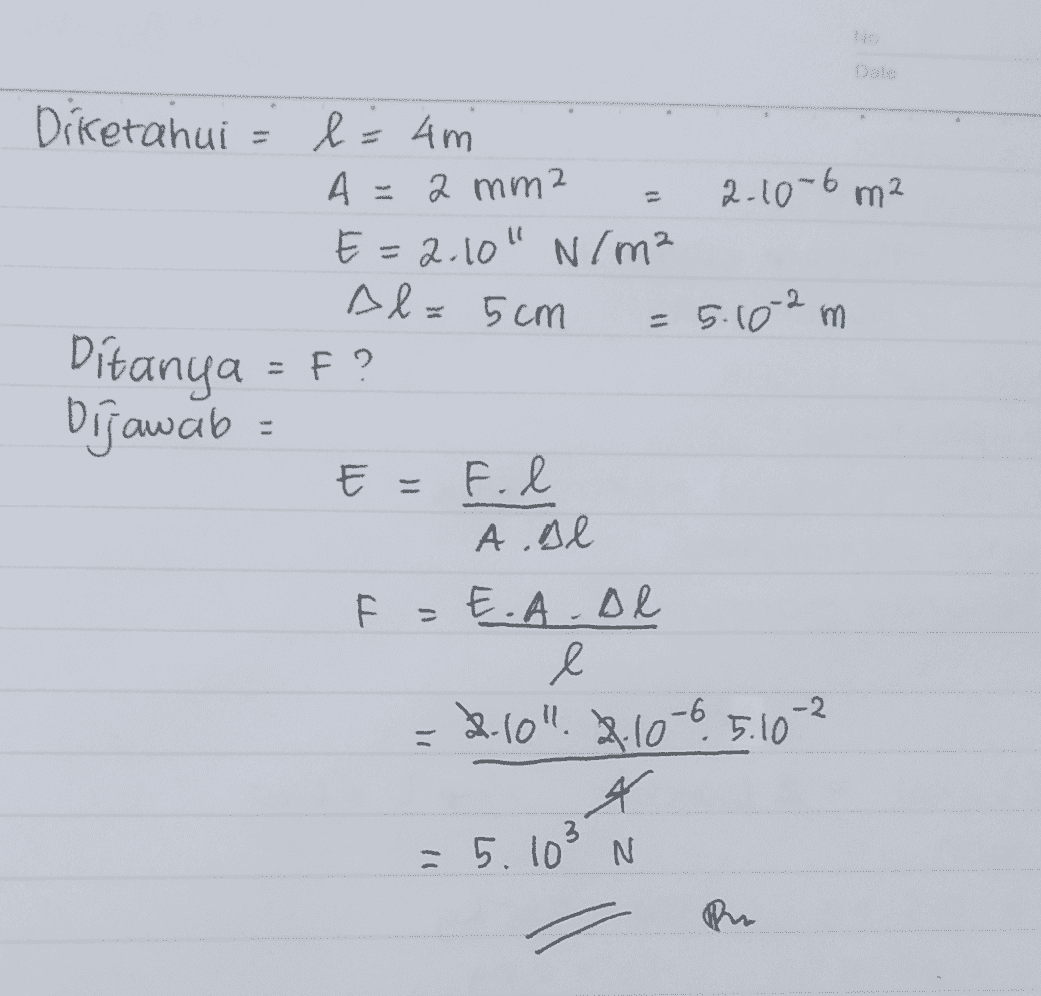 No
Date
Diketahui = l = 4m
A = 2 mm² = 2.10⁻⁶ m²
E = 2.10¹¹ N/m²
Δl = 5 cm = 5.10⁻² m
Ditanya = F ?
Dijawab =
E = F.l
A.Δl
F = E.A.Δl
l
= 2.10¹¹. 2.10⁻⁶. 5.10⁻²
4
= 5.10³ N